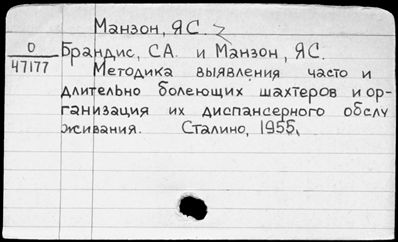 Манзон, Я.С.
О
47177
Брандис, С.А. и Манзон, Я.С.
Методика выявления часто и
длительно болеющих шахтеров и ор-
ганизация их диспансерного обслу
живания. Сталино, 1955.